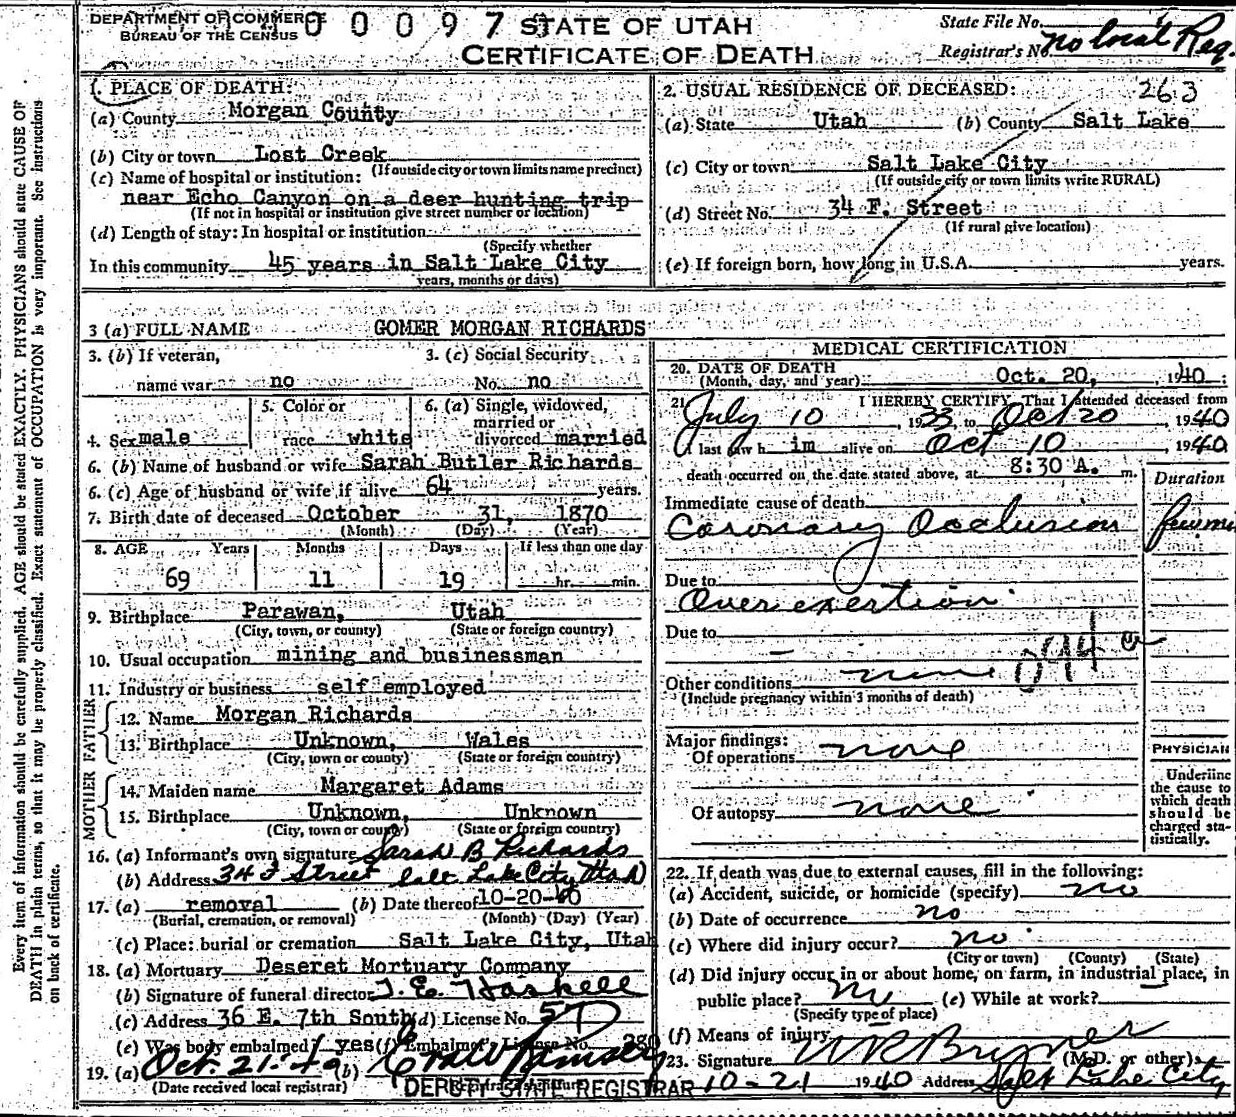 DEPARTMENT OF COMMERCE
BUREAU OF THE CENSUS
0 0 0 9 7
STATE OF UTAH
CERTIFICATE OF DEATH
State File No.
Registrar's No. no local Reg.
Every item of information should be carefully supplied. AGE should be stated EXACTLY. PHYSICIANS should state CAUSE OF
DEATH in plain terms, so that it may be properly classified. Exact statement of OCCUPATION is very important. See instructions
on back of certificate.
1. PLACE OF DEATH:
(a) County Morgan County
(b) City or town Lost Creek
(If outside city or town limits name precinct)
(c) Name of hospital or institution:
near Echo Canyon on a deer hunting trip
(If not in hospital or institution give street number or location)
(d) Length of stay: In hospital or institution
(Specify whether
In this community 45 years in Salt Lake City
years, months or days)
2. USUAL RESIDENCE OF DECEASED: 263
(a) State Utah (b) County Salt Lake
(c) City or town Salt Lake City
(If outside city or town limits write RURAL)
(d) Street No. 34 F. Street
(If rural give location)
(e) If foreign born, how long in U.S.A. years.
3 (a) FULL NAME GOMER MORGAN RICHARDS
3. (b) If veteran, name war no
3. (c) Social Security No. no
4. Sex male
5. Color or race white
6. (a) Single, widowed, married or divorced married
6. (b) Name of husband or wife Sarah Butler Richards
6. (c) Age of husband or wife if alive 64 years.
7. Birth date of deceased October 31, 1870
(Month) (Day) (Year)
8. AGE Years Months Days If less than one day
69 11 19 hr. min.
9. Birthplace Parawan, Utah
(City, town, or county) (State or foreign country)
10. Usual occupation mining and businessman
11. Industry or business self employed
FATHER
12. Name Morgan Richards
13. Birthplace Unknown, Wales
(City, town or county) (State or foreign country)
MOTHER
14. Maiden name Margaret Adams
15. Birthplace Unknown, Unknown
(City, town or county) (State or foreign country)
16. (a) Informant's own signature Sarah B Richards
(b) Address 34 F Street Salt Lake City Utah
17. (a) removal (b) Date thereof 10-20-40
(Burial, cremation, or removal) (Month) (Day) (Year)
(c) Place: burial or cremation Salt Lake City, Utah
18. (a) Mortuary Deseret Mortuary Company
(b) Signature of funeral director J. E. Haskell
(c) Address 36 E. 7th South (d) License No. 57
(e) Was body embalmed? yes (f) Embalmer's License No. 280
19. (a) Oct. 21. 40 (b)
(Date received local registrar) DEPUTY STATE REGISTRAR
MEDICAL CERTIFICATION
20. DATE OF DEATH
(Month, day, and year) Oct. 20, 1940
21. I HEREBY CERTIFY, That I attended deceased from
July 10, 1933, to Oct 20, 1940
I last saw him alive on Oct 10 1940
death occurred on the date stated above, at 8:30 A. m.
Duration
Immediate cause of death
Coronary Occlusion few
Due to
Over exertion
Due to
094 a
Other conditions none
(Include pregnancy within 3 months of death)
Major findings:
Of operations none
Of autopsy none
PHYSICIAN
Underline
the cause to
which death
should be
charged sta-
tistically.
22. If death was due to external causes, fill in the following:
(a) Accident, suicide, or homicide (specify) no
(b) Date of occurrence no
(c) Where did injury occur? no
(City or town) (County) (State)
(d) Did injury occur in or about home, on farm, in industrial place, in
public place? no (e) While at work?
(Specify type of place)
(f) Means of injury
23. Signature W R Bryner (M.D. or other)
10-21 1940 Address Salt Lake City